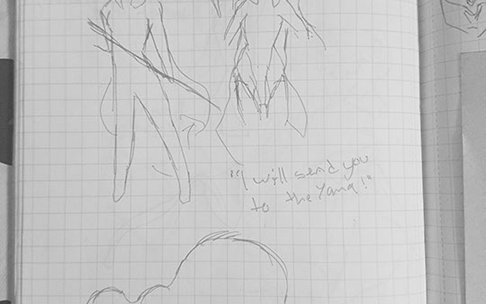 "I will send you
to the Yama!"